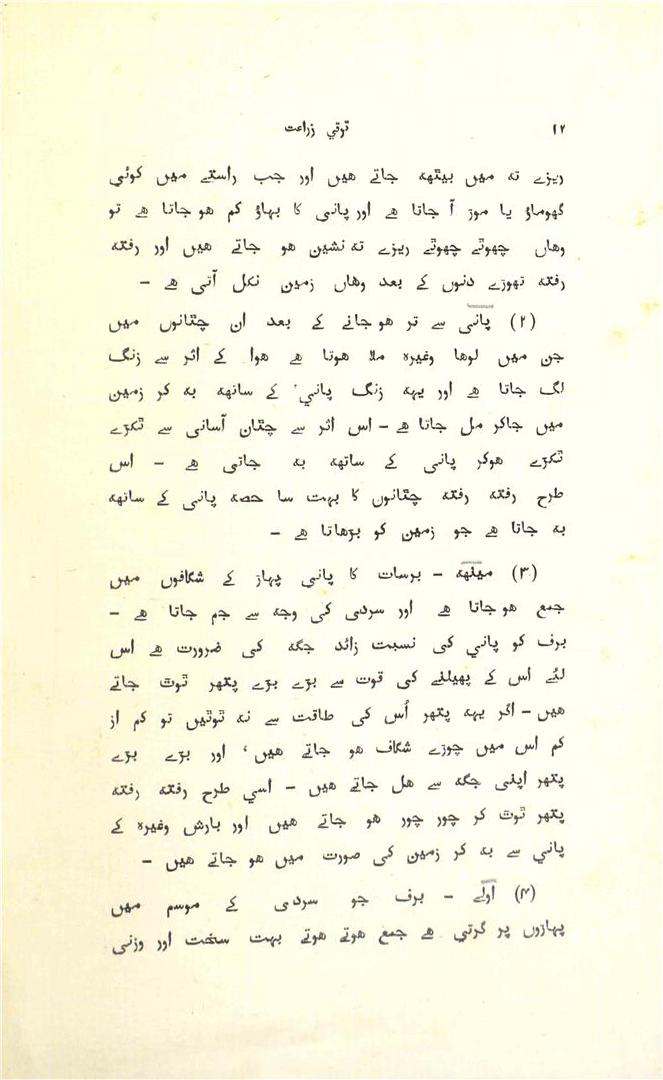 ۱۲ ترقي زراعت
ریزے تہ میں بیٹھہ جاتے هیں اور جب راستے میں کوئی
گھوماؤ یا موڑ آ جاتا ہے اور پانی کا بہاؤ کم هو جاتا ہے تو
وهاں چھوٹے چھوٹے ریزے تہ نشین هو جاتے هیں اور رفتہ
رفتہ تھوڑے دنوں کے بعد وهاں زمین نکل آتی ہے –
(۲) پانی سے تر هو جانے کے بعد ان چٹانوں میں
جن میں لوها وغیرہ ملا هوتا ہے هوا کے اثر سے زنگ
لگ جاتا ہے اور یہہ زنگ پانی' کے ساتھہ بہ کر زمین
میں جاکر مل جاتا ہے – اس اثر سے چٹان آسانی سے ٹکڑے
ٹکڑے هوکر پانی کے ساتھہ بہ جاتی ہے – اس
طرح رفتہ رفتہ چٹانوں کا بہت سا حصہ پانی کے ساتھہ
بہ جاتا ہے جو زمین کو بڑھاتا ہے –
(۳) مینھہ – برسات کا پانی پہاڑ کے شگافوں میں
جمع هو جاتا ہے اور سردی کی وجہ سے جم جاتا ہے –
برف کو پانی کی نسبت زائد جگہ کی ضرورت ہے اس
لئے اس کے پھیلنے کی قوت سے بڑے بڑے پتھر ٹوٹ جاتے
هیں – اگر یہہ پتھر اُس کی طاقت سے نہ ٹوٹیں تو کم از
کم اس میں چوڑے شگاف هو جاتے هیں ' اور بڑے بڑے
پتھر اپنی جگہ سے هل جاتے هیں – اسی طرح رفتہ رفتہ
پتھر ٹوٹ کر چور چور هو جاتے هیں اور بارش وغیرہ کے
پانی سے بہ کر زمین کی صورت میں هو جاتے هیں –
(۴) اولے – برف جو سردی کے موسم میں
پہاڑوں پر گرتی ہے جمع هوتے هوتے بہت سخت اور وزنی